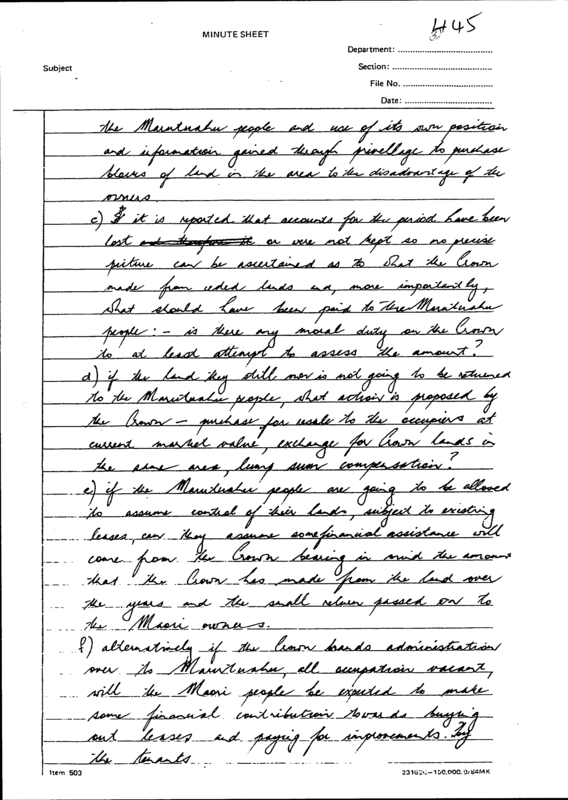 445
MINUTE SHEET
Department:
Subject
Section:
File No.
Date:
the Marutuahu people and use of its own position
and information gained through privellage to purchase
blocks of land in the area to the disadvantage of the
owners
c) If it is reported that accounts for the period have been
lost and therefore it or were not kept so no precise
picture can be ascertained as to what the Crown
made from ceded lands and, more importantly,
what should have been paid to the Marutuahu
people: - is there any moral duty on the Crown
to at least attempt to assess the amount?
d) if the land they still own is not going to be returned
to the Marutuahu people, what action is proposed by
the Crown - purchase for resale to the occupiers at
current market value, exchange for Crown lands in
the same area, lump sum compensation?
e) if the Marutuahu people are going to be allowed
to assume control of their lands, subject to existing
leases, can they assume some financial assistance will
come from the Crown bearing in mind the amount
that the Crown has made from the land over
the years and the small return passed on to
the Maori owners.
f) alternatively if the Crown hands administration
over to Marutuahu, all occupation vacant,
will the Maori people be expected to make
some financial contribution towards buying
out leases and paying for improvements. by
the tenants
Item 503
231620-150,000.9/84MK